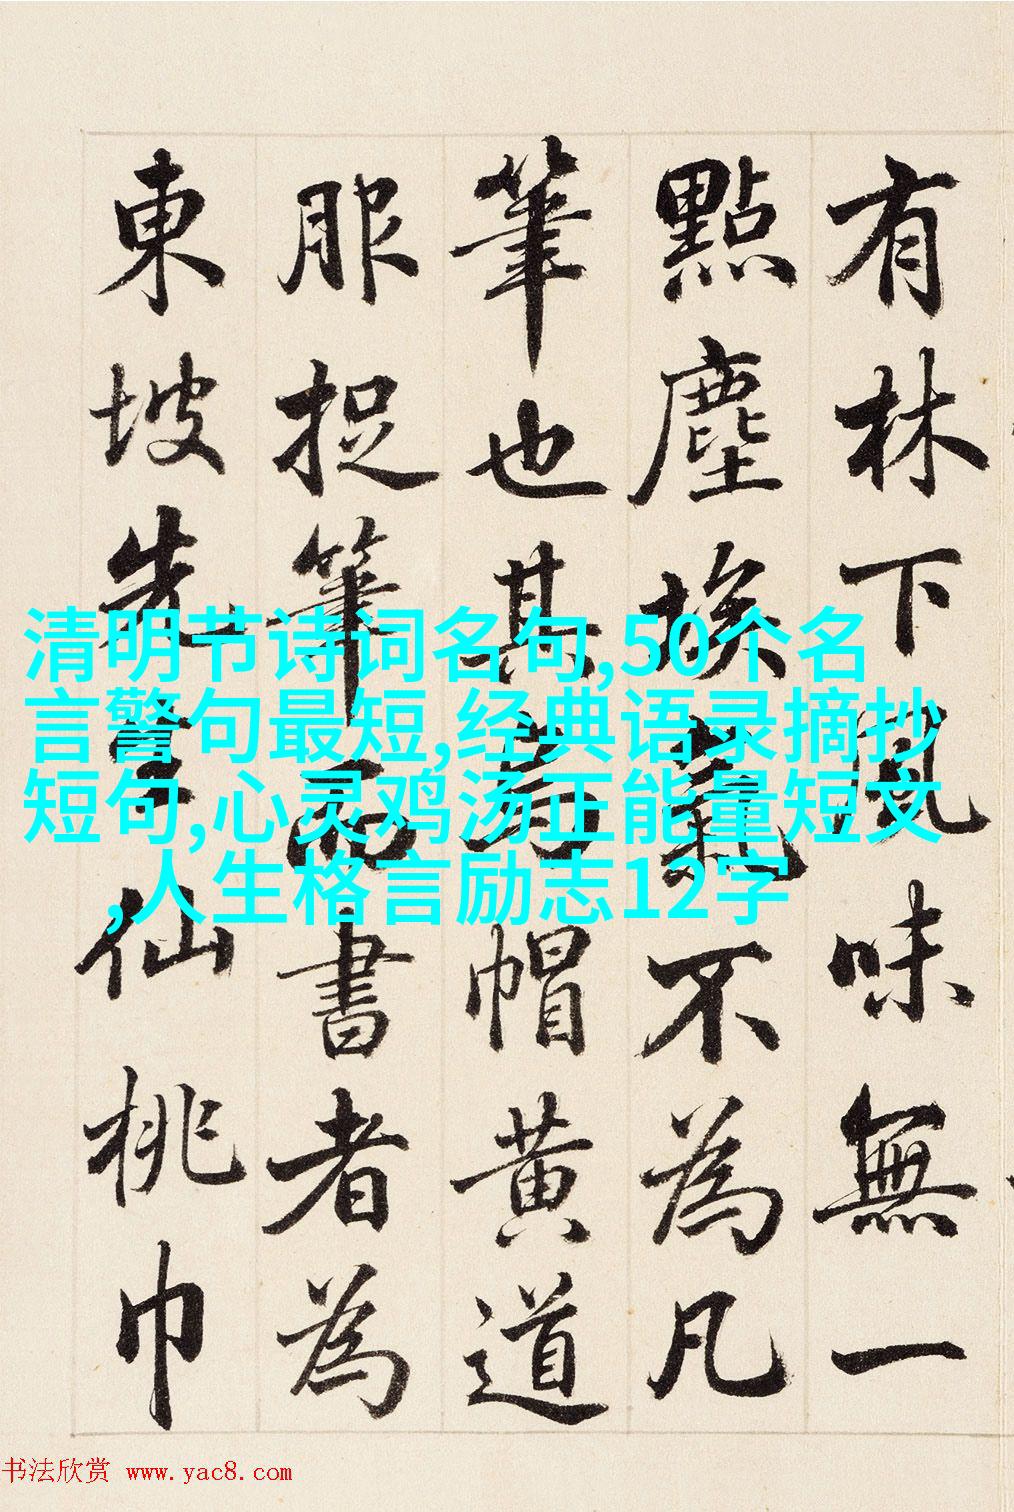 有林下風味無一
點塵埃氣不為凡
筆也其烏帽黃道
服捉筆而書者為
東坡先生仙桃巾
清明节诗词名句,50个名
言警句最短,经典语录摘抄
短句,心灵鸡汤正能量短文
,人生格言励志12字
书法欣赏 www.yac8.com